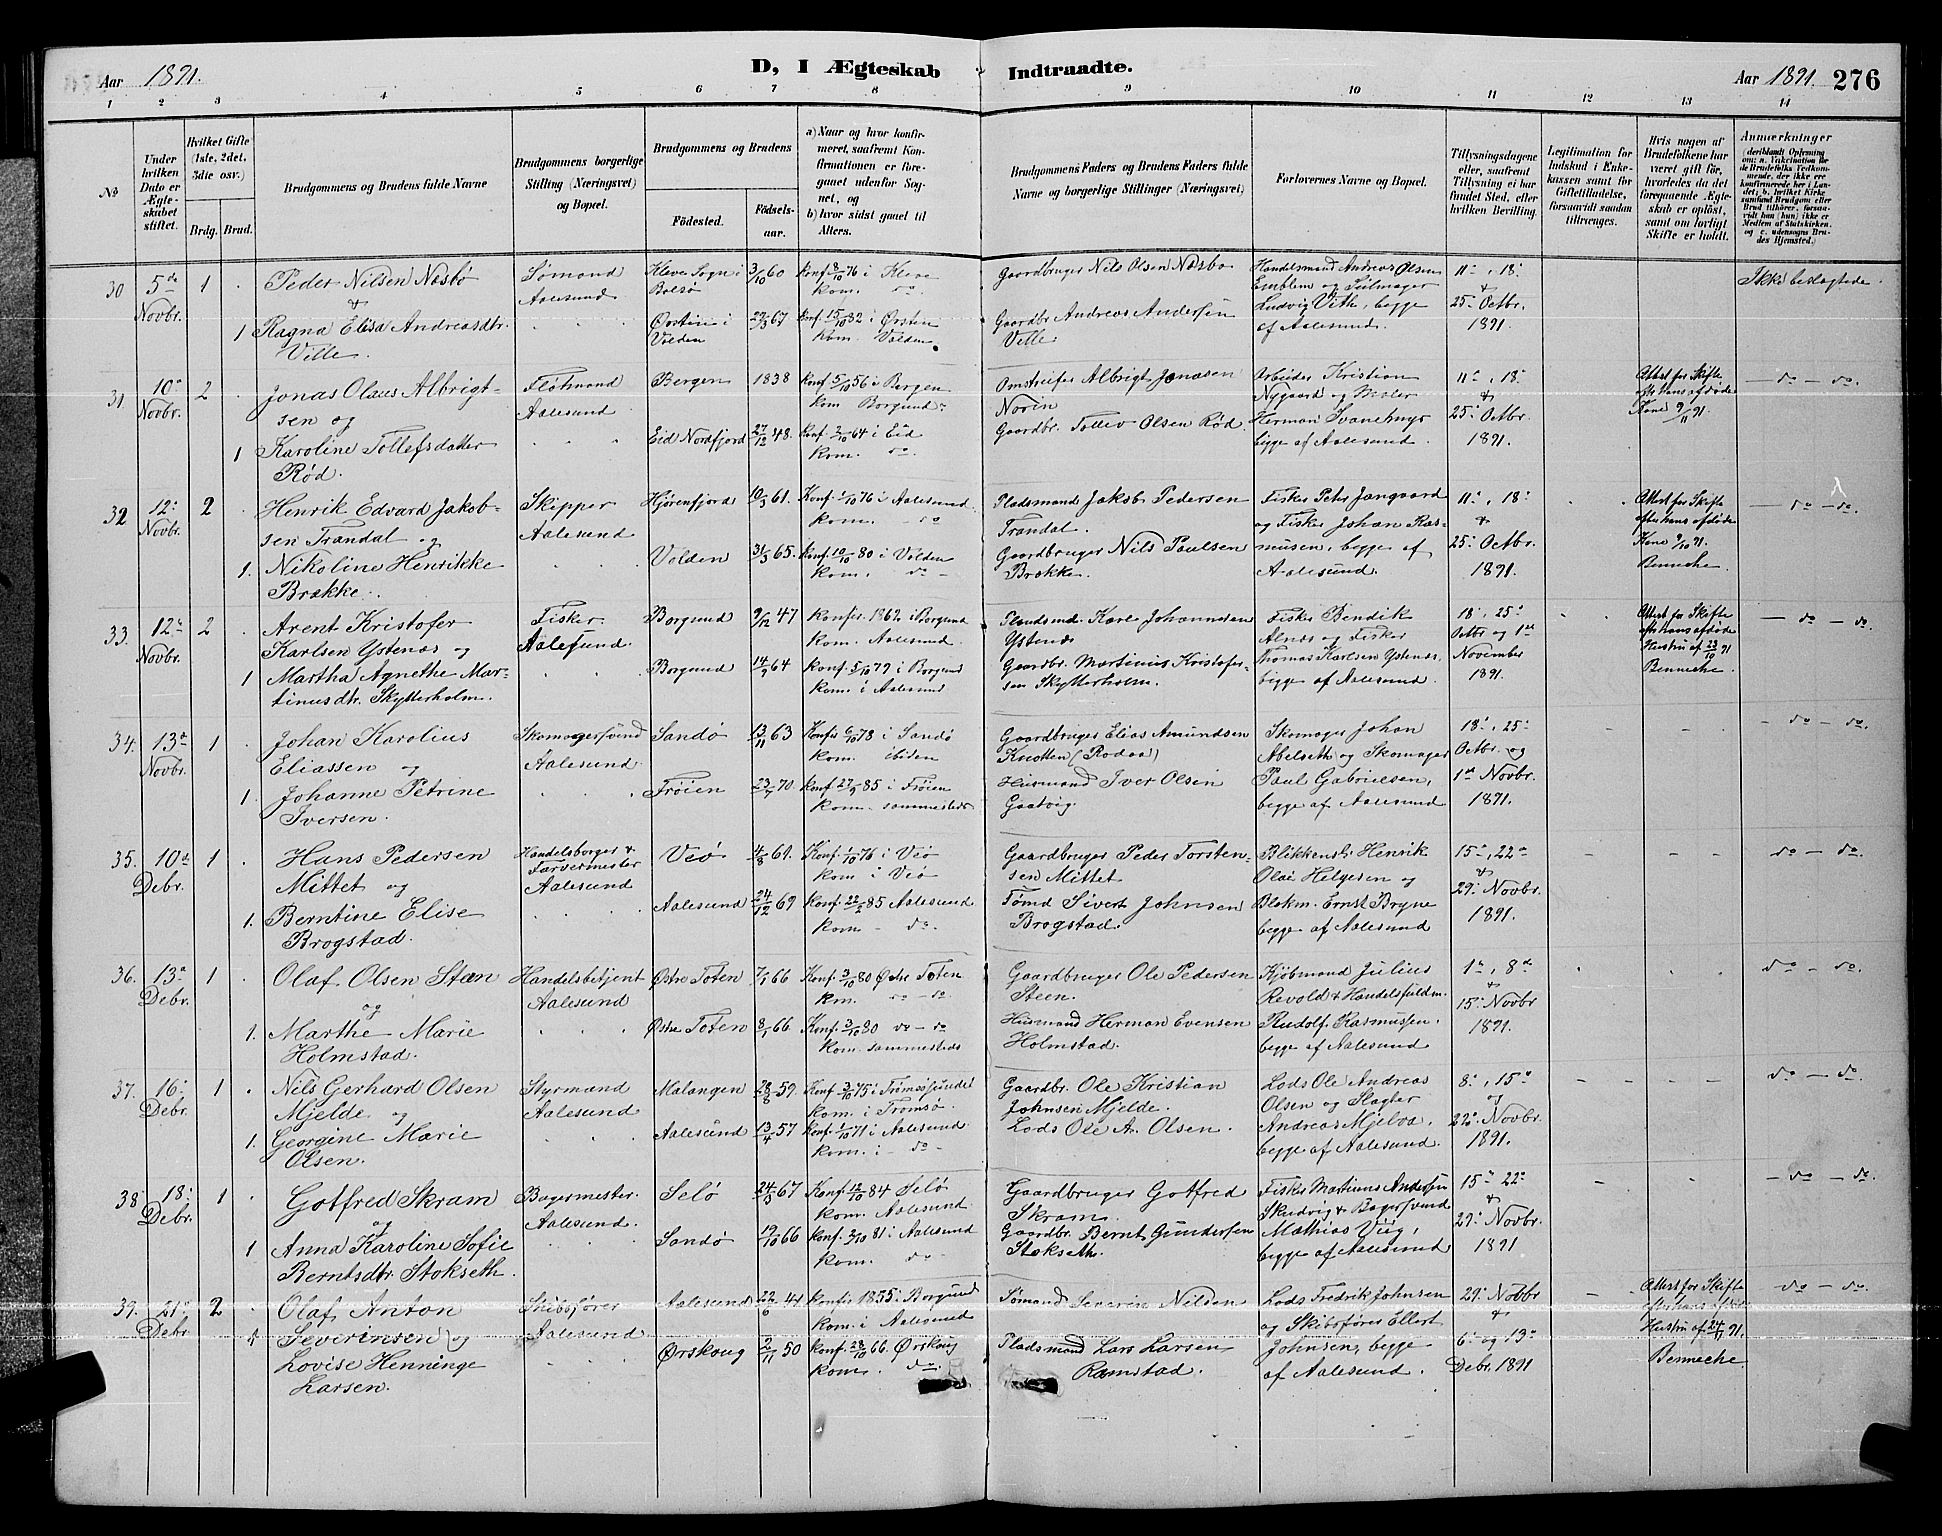 D, I Ægteskab Indtraadte.
Aar 1891.
Aar 1891. 276
1 2 3 4 5 6 7 8 9 10 11 12 13 14
No
Under hvilken Dato er Ægteskabet stiftet.
Hvilket Gifte (1ste, 2det, 3die osv.)
Brdg. Brud.
Brudgommens og Brudens fulde Navne
Brudgommens borgerlige Stilling (Næringsvei) og Bopæl.
Brudgommens og Brudens
Fødested. Fødsels-aar.
a) Naar og hvor konfirmeret, saafremt Konfirmationen er foregaaet udenfor Sognet, og
b) hvor sidst gaaet til Alters.
Brudgommens Faders og Brudens Faders fulde Navne og borgerlige Stillinger (Næringsvei)
Forlovernes Navne og Bopæl.
Tillysningsdagene eller, saafremt Tillysning ei har fundet Sted, efter hvilken Bevilling.
Legitimation for Indskud i Enkekassen samt for Giftetilladelse, forsaavidt saadan tiltrænges.
Hvis nogen af Brudefolkene har været gift før, hvorledes da det foregaaende Ægteskab er opløst, samt om lovligt Skifte er holdt.
Anmærkninger
30 5te Novbr. 1
Peder Nilsen Næsbø
&
1 Ragna Elisa Andreasdtr.
Ville.
Sømand
Aalesund
Kleve Sogn i
Bolsø
3/10 60
Konf 8/10 76 i Kleve
kom. do.
Ørsten i
Volden
29/3 67
Konf. 15/10 82 i Ørsten
kom. Volden
Gaardbruger Nils Olsen Næsbø
Gaardbr Andreas Andersen
Ville
Handelsmand Andreas Olsen
Emblem og Seilmager
Ludvig Vith, begge
af Aalesund.
11te, 18
&
25 Octbr.
1891.
Ikke beslægtede
31. 10 Novbr. 2
Jonas Olaus Albrigt-
sen og
1 Karoline Tollefsdatter
Rød.
Fløtmand
Aalesund
Bergen 1838
Konf 5/10 56 i Bergen
kom Borgund
Eid Nordfjord 27/12 48.
Konf. 2/10 64 i Eid
kom. do.
Omstreifer Albrigt Jonasen
Norin
Gaardbr. Tollev Olsen Rød.
Arbeider Kristian
Nygaard og Maler
Herman Svanemyr
begge af Aalesund.
11, 18
&
25 Octbr.
1891.
Attest for Skifte
efter hans afdøde
Kone 9/11 91.
— do — do.
32 12 Novbr. 2
Henrik Edvard Jakob-
sen Trandal og
1. Nikoline Henrikke
Brække.
Skipper
Aalesund
Hjørenfjord 10/3 61.
Konf. 1/10 76 i Aalesund
kom. — do
Volden 31/3 65.
Konf. 10/10 80 i Volden
kom. do —
Pladsmand Jakob Pedersen
Trandal.
Gaardbruger Nils Paulsen
Brække.
Fisker Peter Jangaard
og Fisker Johan Ras-
musen, begge af
Aalesund.
11, 18
&
25. Octbr.
1891.
Attest for Skifte
efter hans afdøde
Kone 9/10 91.
Benneche
— do — do.
33 12te Novbr. 2
Arent Kristofer
Karlsen Ystenæs og
1 Martha Agnethe Mar-
tinusdtr. Skytterholm.
Fisker
Aalesund
Borgund 9/12 47
Konfir. 1862 i Borgund
kom. Aalesund.
Borgund 14/9 64
Konf. 5/10 79 i Borgund
kom. i Aalesund
Karl Johannesen
Ystenæs
Gaardbr. Martinus Kristofer-
sen Skytterholm.
Fisker Bendik
Alnæs og Fisker
Thomas Karlsen Ystenæs,
begge af Aalesund.
18, 25
Octbr og 1ste
November
1891.
Attest for Skifte
efter hans afdøde
Hustru af 23/10 91
Benneche
— do — do.
34. 13de Novbr. 1
Johan Karolius
Eliassen og
1. Johanne Petrine
Iversen.
Skomagersvend
Aalesund.
Sandø 13/11 63
Konfir 6/10 78 i Sandø
kom. ibiden
Frøien 23/7 70.
Konf 27/9 85 i Frøien
kom. sammesteds
Gaardbruger Elias Amundsen
Knotten (Rodaa)
Husmand Iver Olsen
Gaatvig
Skomager Johan
Abelseth og Skomager
Paul Gabrielsen,
begge af Aalesund
18, 25
Octbr. og
1ste Novbr.
1891.
— do — do.
35. 10de Debr. 1
Hans Pedersen
Mittet og
1. Berntine Elise
Brogstad.
Handelsborger &
Farvermester
Aalesund
Veø 4/8 61.
Konf. 1/10 76 i Veø
kom i Veø
Aalesund 24/12 69
Konf 22/2 85 Aalesund
kom — do.
Gaardbruger Peder Torsten-
sen Mittet
Tømd Sivert Johnsen
Brogstad.
Blikkensl. Henrik
Olai Helgesen og
Blokm. Ernst Bryne
begge af Aalesund
15, 22
&
29. Novbr.
1891.
do — do.
36. 13 Debr. 1
Olaf Olsen Steen
og
1. Marthe Marie
Holmstad.
Handelsbetjent
Aalesund
Østre Toten 7/1 66
Konf 3/10 80 Østre Toten
km. do — do.
Østre Toten 8/1 66.
Konf. 3/10 80 do — do
kom. sammesteds
Gaardbruger Ole Pedersen
Steen.
Husmand Herman Evensen
Holmstad.
Kjøbmand Julius
Revold & Handelsfuldm.
Rudolf Rasmussen,
begge af Aalesund
1, 8de
&
15 Novbr
1891.
do — do.
37. 16 Debr. 1
Nils Gerhard Olsen
Mjelde og
1. Georgine Marie
Olsen.
Styrmand
Aalesund
Malangen 28/8 59.
Konf 3/10 75 i Tromsøsundet
kom. i Tromsø.
Aalesund 13/4 57
Konf. 1/10 71 i Aalesund
kom. i — do —
Gaardbr. Ole Kristian
Johnsen Mjelde.
Lods Ole A. Olsen.
Lods Ole Andreas
Olsen og Slagter
Andreas Mjelva,
begge af Aalesund.
8, 15
og
22 Novbr.
1891.
do — do.
38 18 Debr. 1
Gotfred Skram
og
1 Anna Karoline Sofie
Berntsdtr. Stokseth.
Bagermester
Aalesund.
Selø 24/3 67
Konf. 12/10 84 Selø
kom. Aalesund
Sandø 19/10 66
Konf. 2/10 81 i Aalesund
kom. do —
Gaardbruger Gotfred
Skram.
Gaardbr. Bernt Gundersen
Stokseth.
Fisker Martinus Andersen
Skudvig & Bagersvend
Mathias Viig,
begge af Aalesund
15 22
&
29. Novbr.
1891
do — do.
39. 21 Debr. 2
Olaf Anton
1 Severinsen og
Lovise Henninge
Larsen.
Skibsfører
Aalesund
Aalesund 22/6 41
Konfir 1855 i Borgund
kom. i Aalesund
Ørskoug 2/11 50
Konf. 28/10 66 Ørskoug
kom. do.
Tømand Severin Nilsen
Pladsmand Lars Larsen
Ramstad.
Lods Fredrik Johnsen
og Skibsfører Ellert
Johnsen, begge
af Aalesund.
29. Novbr
&
6 og 13
Debr. 1891
Attest for Skifte
efter hans afdøde
Hustru af 24/11 91.
Benneche
do — do.